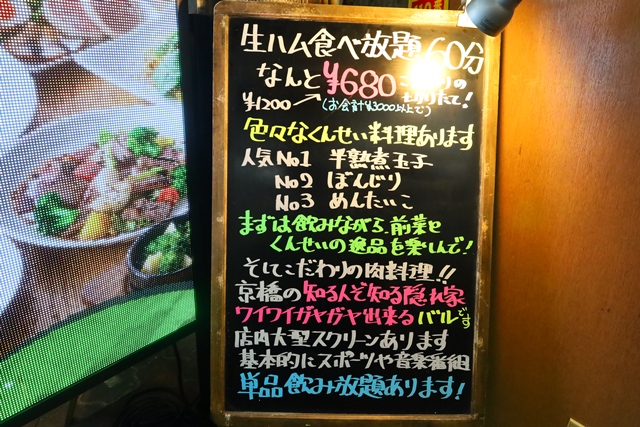 生ハム食べ放題60分
なんと¥680
¥1200 → (お会計¥3000以上で) 切りたて!
色々なくんせい料理あります
人気No1 半熟煮玉子
No2 ぼんじり
No3 めんたいこ
まずは飲みながら前菜と
くんせいの逸品を楽しんで!
そしてこだわりの肉料理!!
京橋の知る人ぞ知る隠れ家
ワイワイガヤガヤ出来るバルです
店内大型スクリーンあります
基本的にスポーツや音楽番組
単品飲み放題あります!